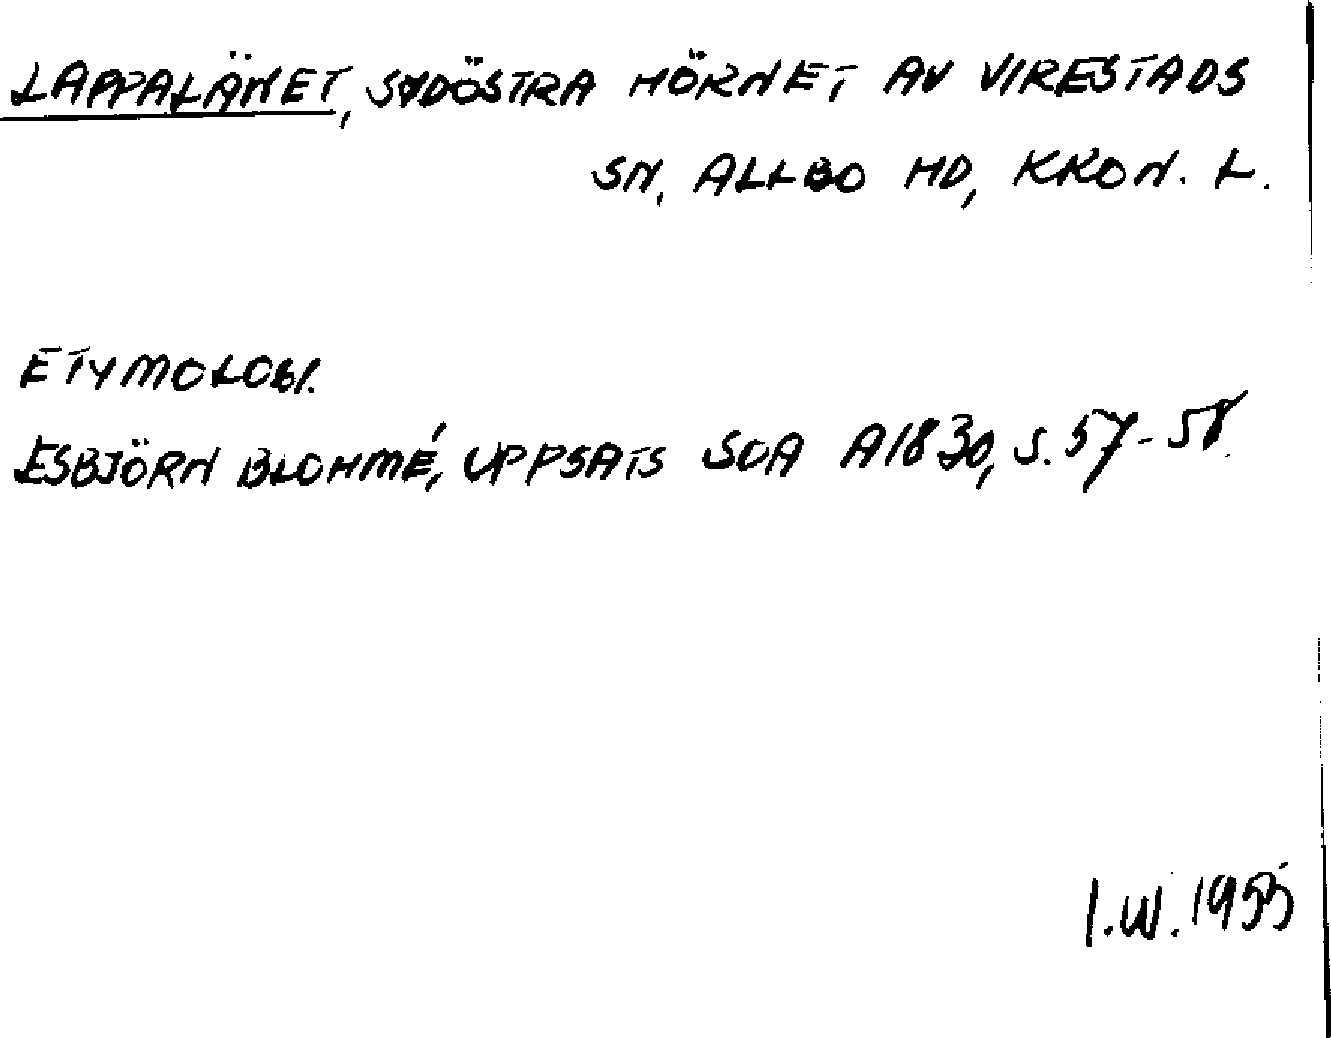 LAPPALÄNET, SYDÖSTRA HÖRNET AV VIRESTADS
SN, ALLBO HD, KRON. L.
ETYMOLOGI.
ESBJÖRN BLOHMÉ, UPPSATS SOA A1830, S. 57-58.
I.W. 1955